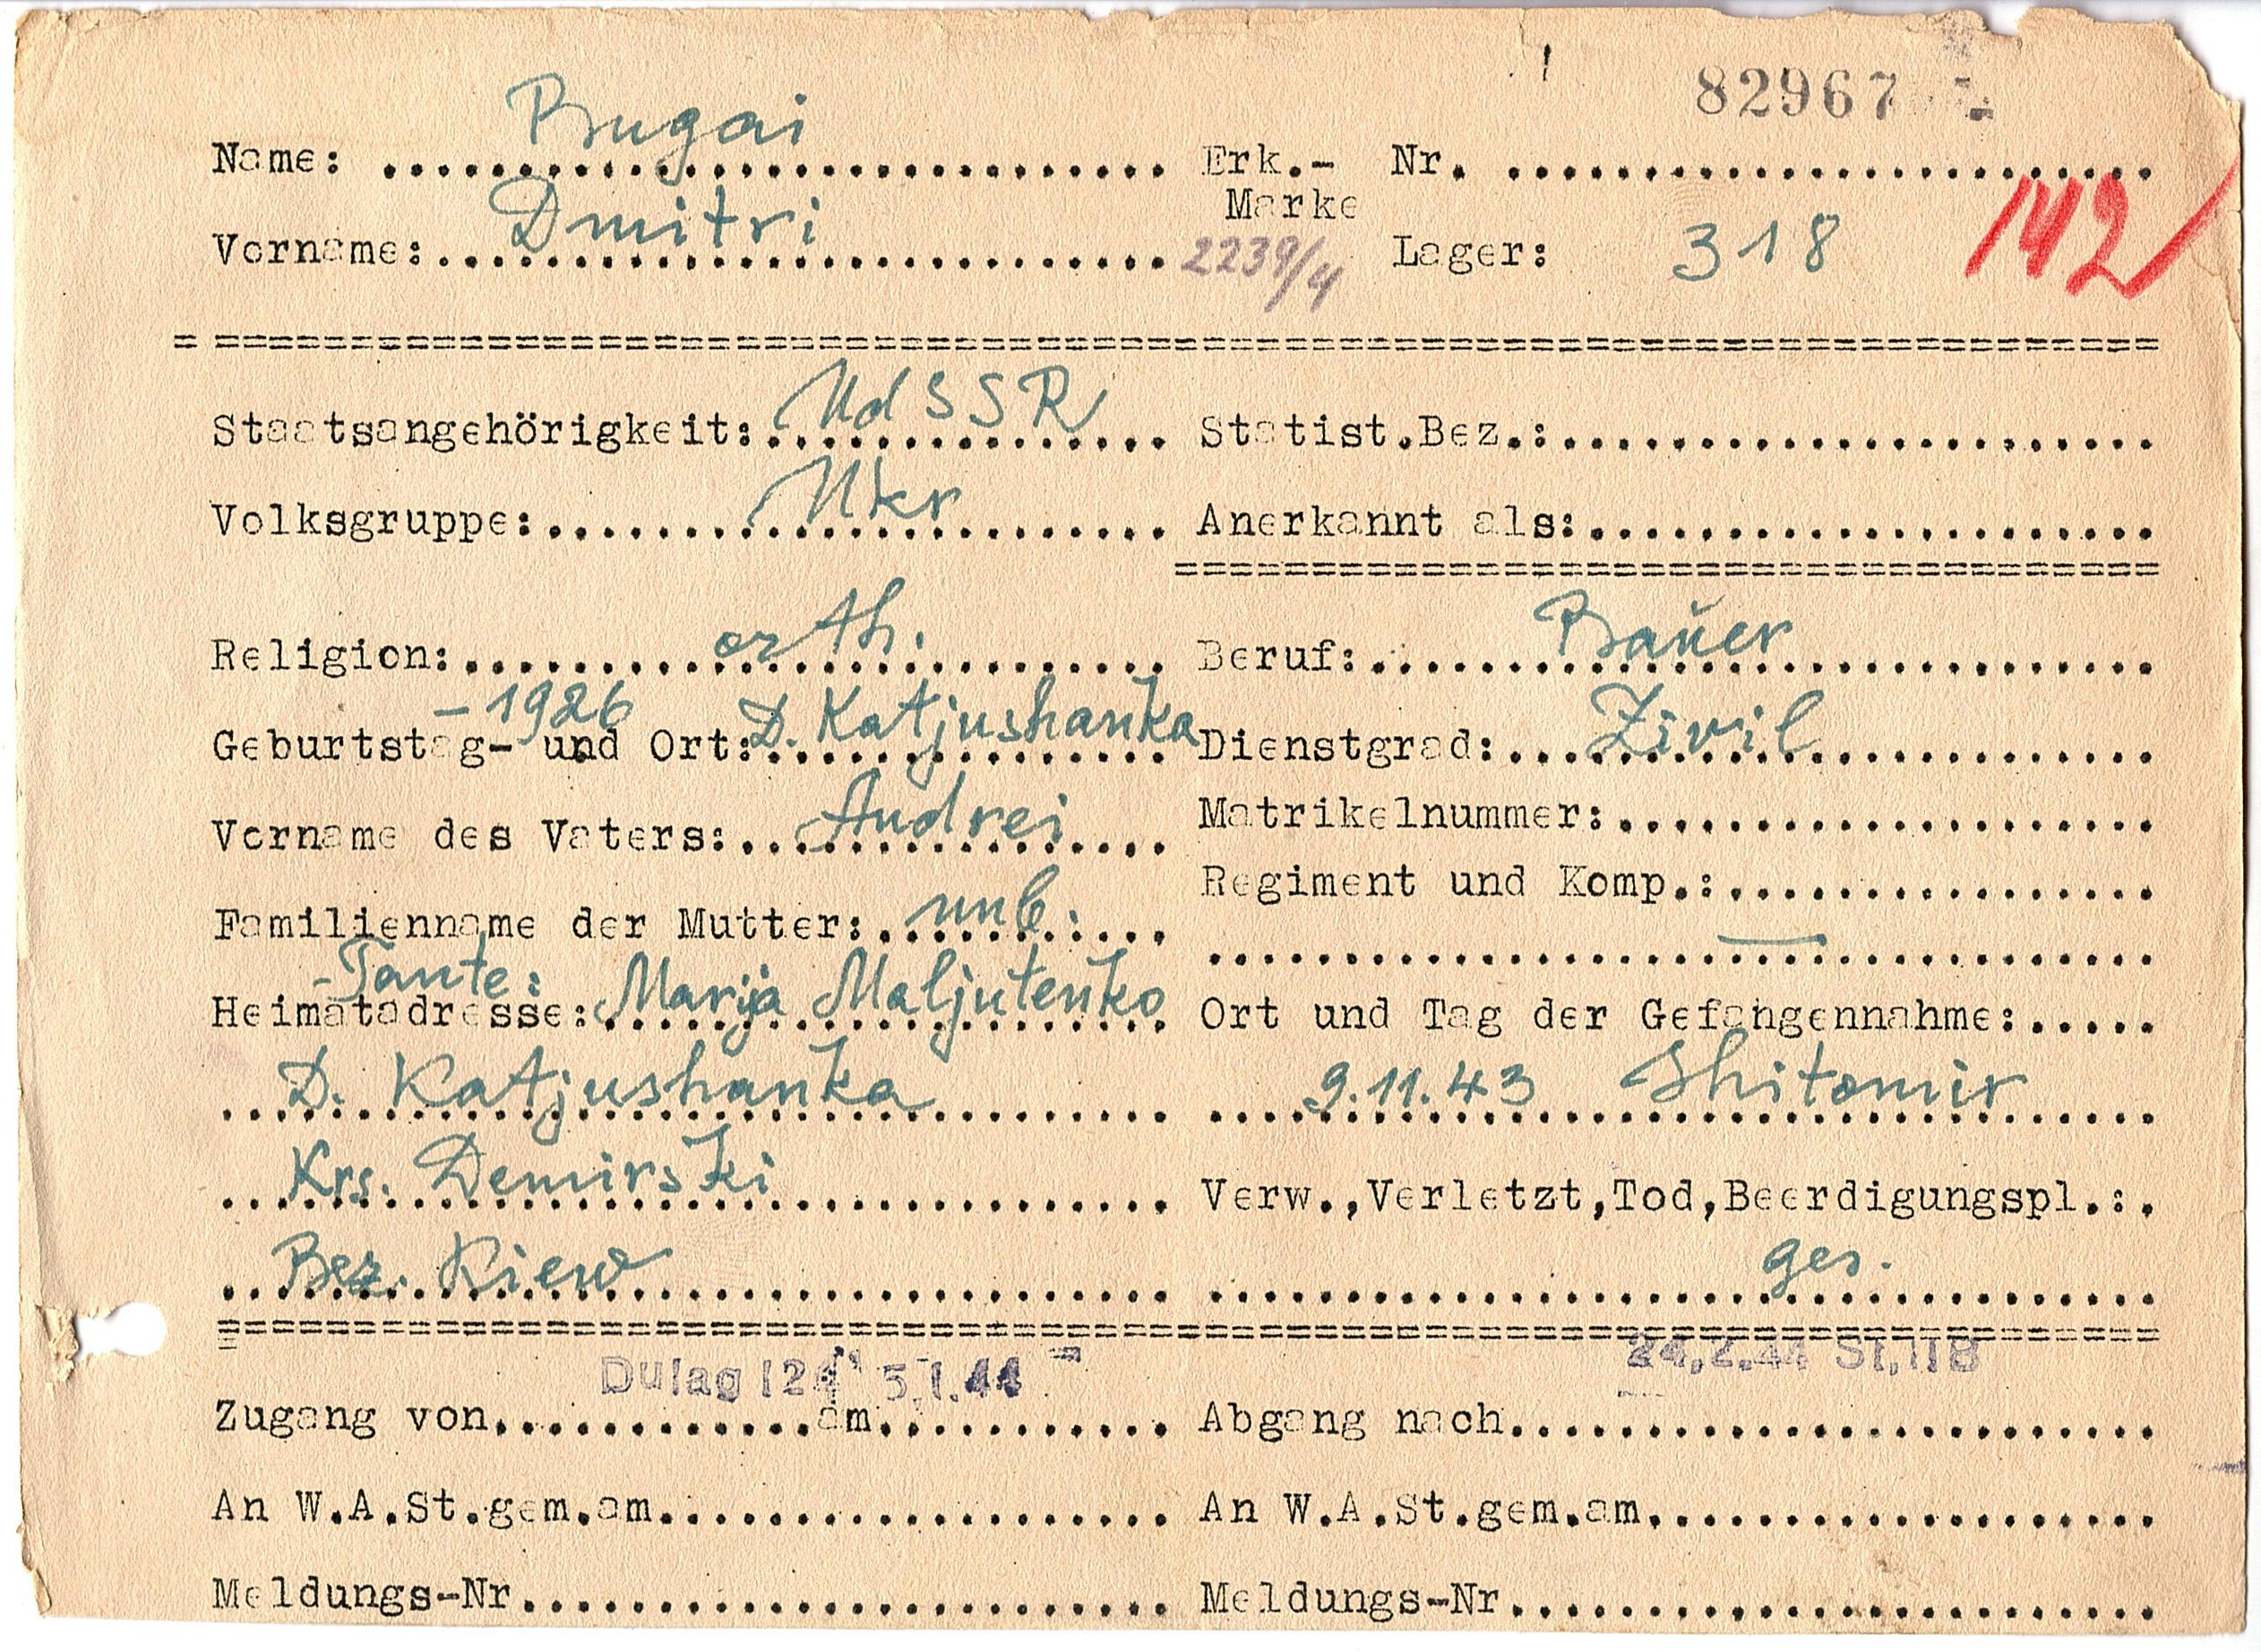 82967
Name: Bugai Erk.- Nr.
Marke
Vorname: Dmitri 2239/4 Lager: 318 142
Staatsangehörigkeit: UdSSR Statist.Bez.:
Volksgruppe: Ukr Anerkannt als:
Religion: orth. Beruf: Bauer
- 1926
Geburtstag- und Ort: D. Katjushanka Dienstgrad: Zivil
Vorname des Vaters: Andrei Matrikelnummer:
Regiment und Komp.:
Familienname der Mutter: unb. —
- Tante:
Heimatadresse: Marija Maljutenko Ort und Tag der Gefangennahme:
D. Katjushanka 9.11.43 Shitomir
Krs. Demirski Verw.,Verletzt,Tod,Beerdigungspl.:
Bez. Kiew ges.
Dulag 124 5.1.44 24.2.44 St. IIB
Zugang von am Abgang nach
An W.A.St.gem.am An W.A.St.gem.am
Meldungs-Nr Meldungs-Nr